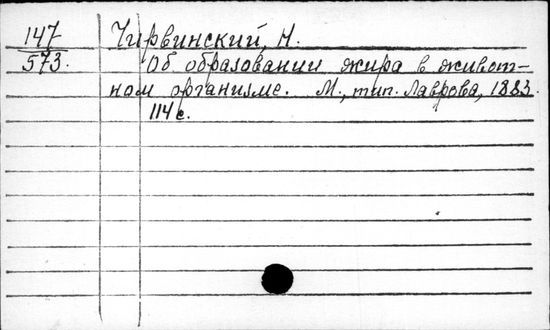 147 Чирвинский, Н.
573. Об образовании жира в живот-
ном организме. М., тип. Лаврова, 1883.
114 с.